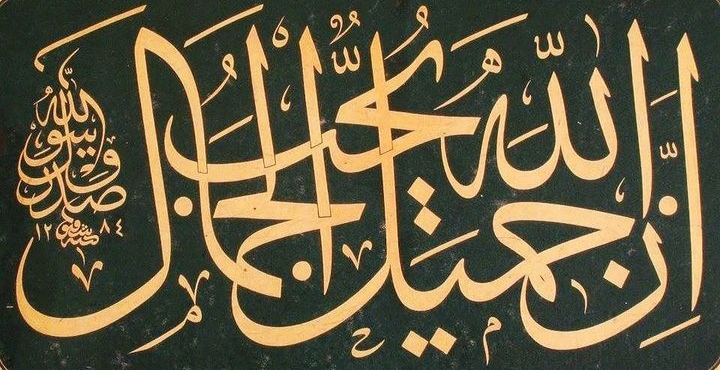 إن الله جميل يحب الجمال
صدق رسول الله
شفيق
سنه ١٢٨٤